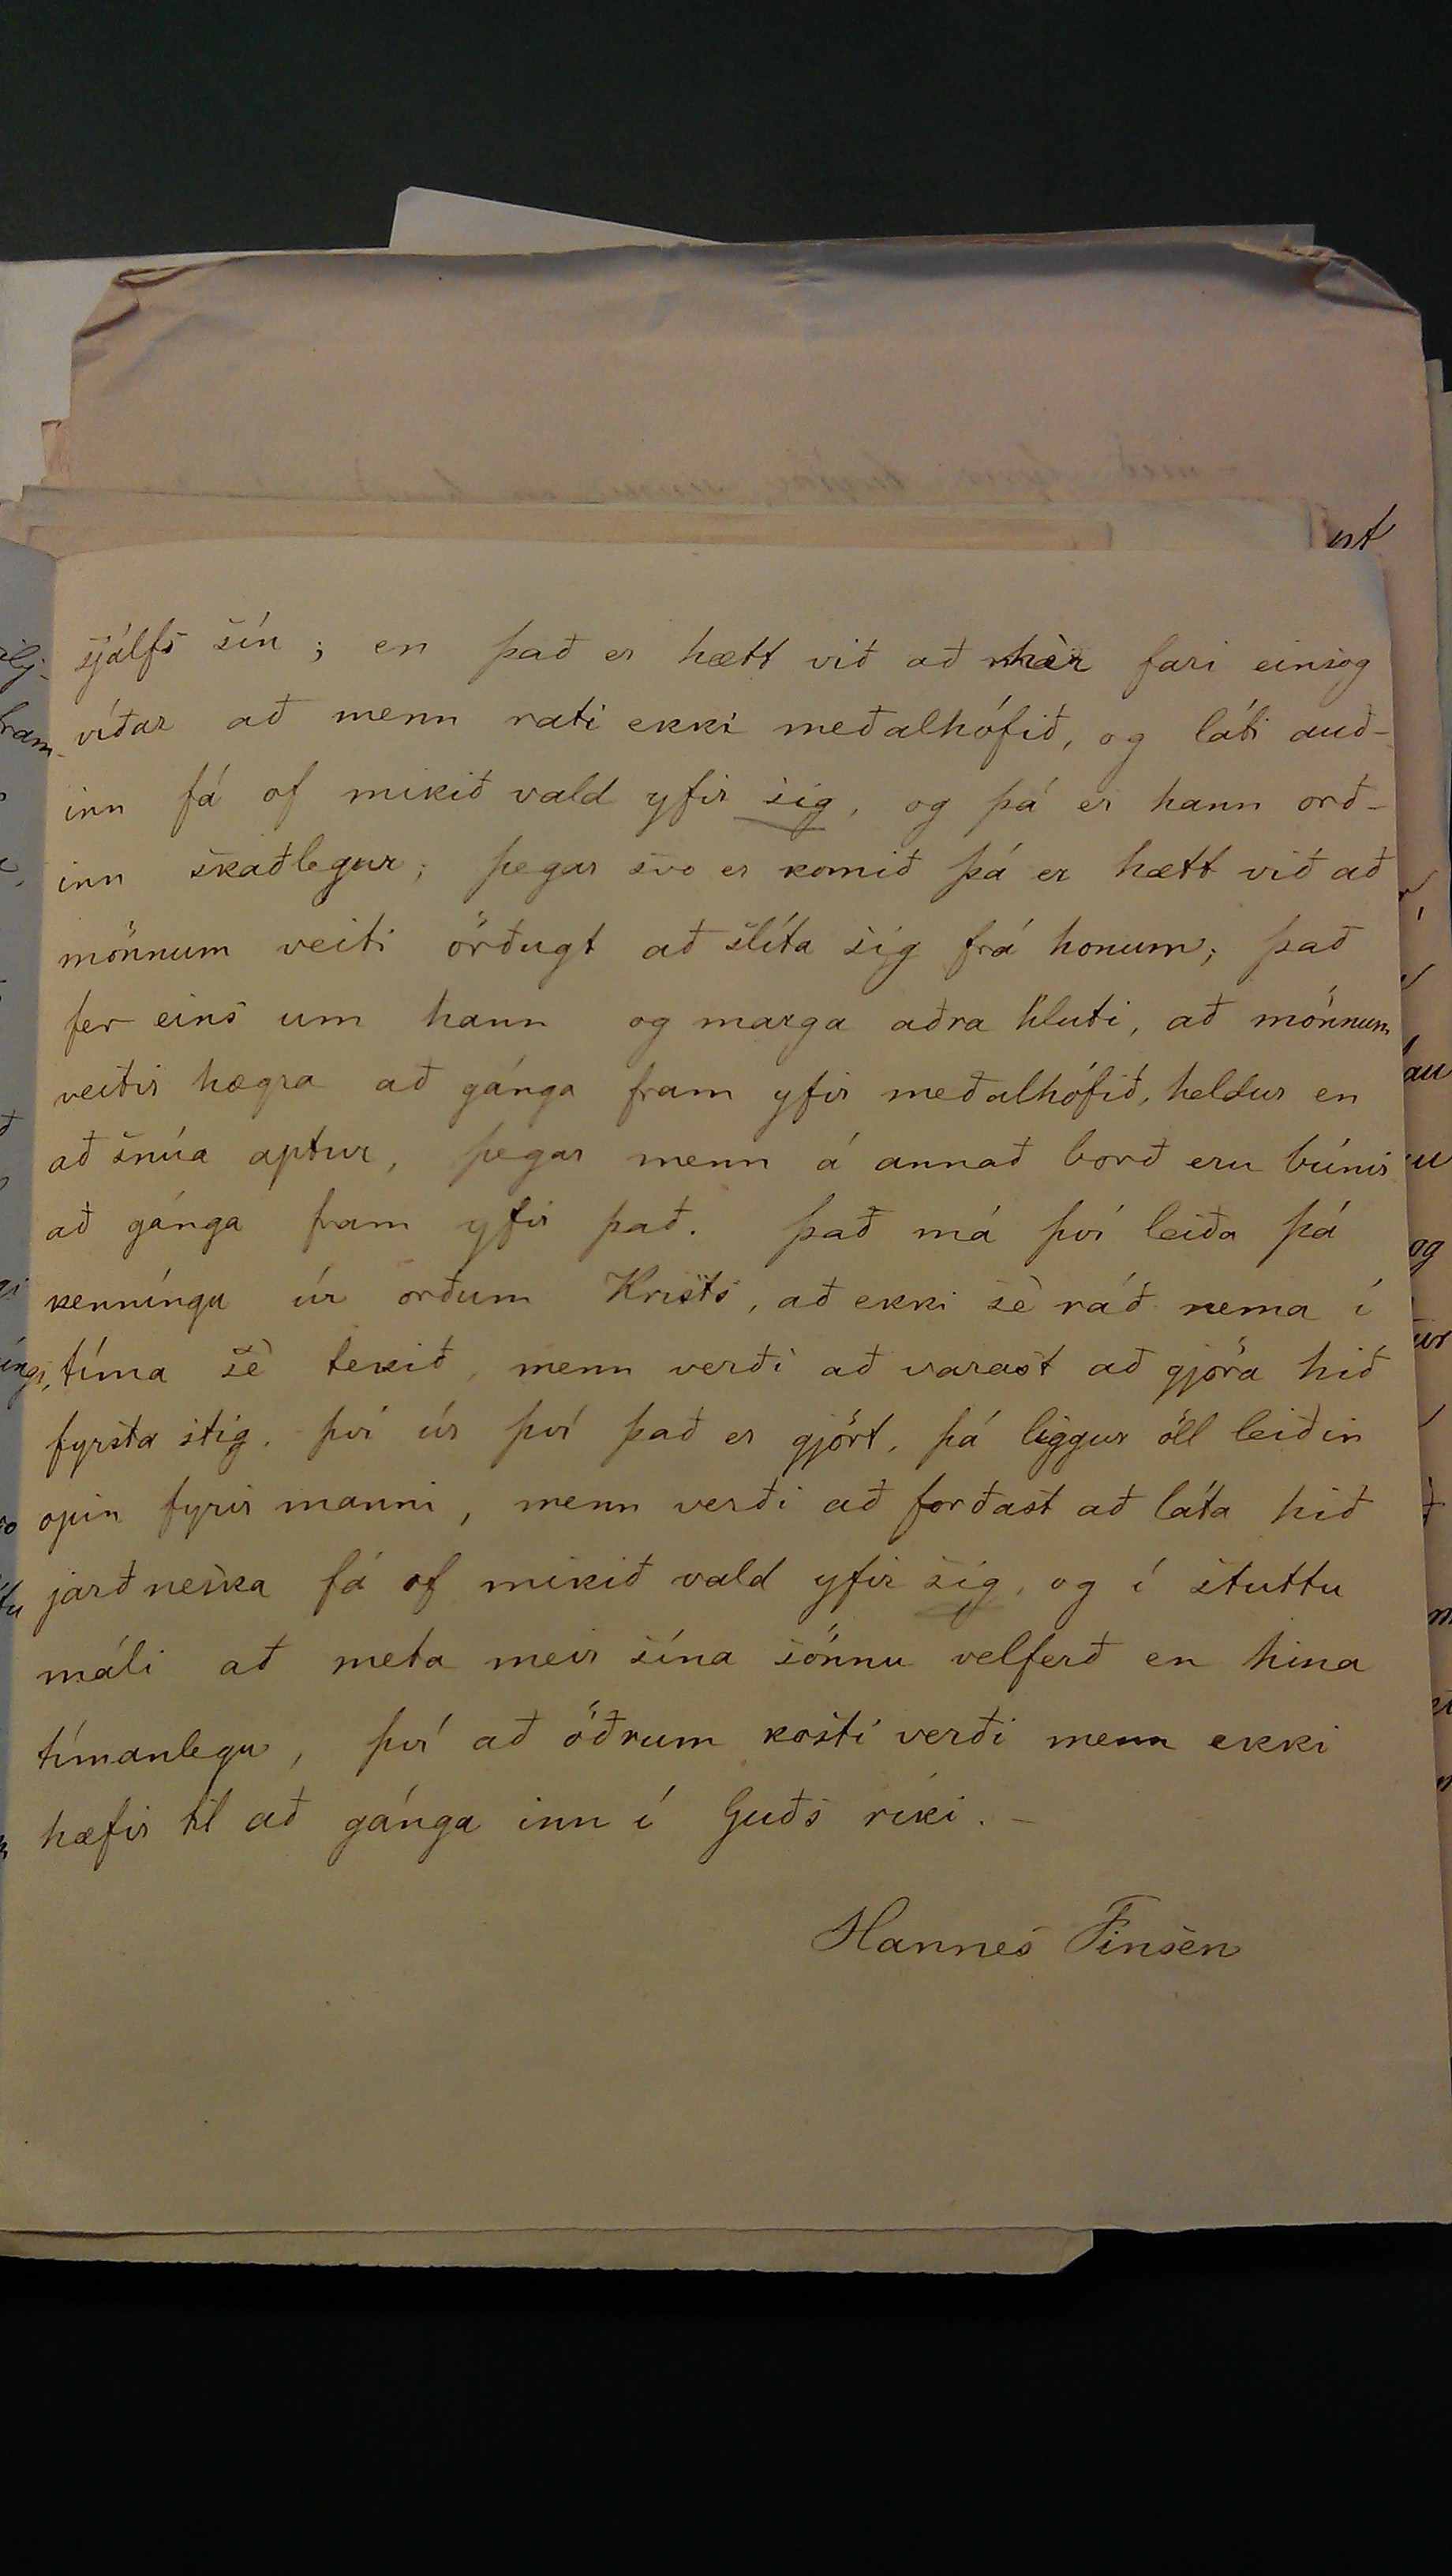 sjálfs sín; en það er hætt við að hèr fari einsog
víðar að menn rati ekki meðalhófið, og láti auð-
inn fá of mikið vald yfir sig, og þá er hann orð-
inn skaðlegur; þegar svo er komið þá er hætt við að
mönnum veiti örðugt að slíta sig frá honum; það
fer eins um hann og marga aðra hluti, að mönnum
veitir hægra að gánga fram yfir meðalhófið, heldur en
að snúa aptur, þegar menn á annað borð eru búnir
að gánga fram yfir það. Það má því leiða þá
kenníngu úr orðum Krists, að ekki sè ráð nema í
tíma sè tekið, menn verði að varast að gjöra hið
fyrsta stig, því úr því það er gjört, þá liggur öll leiðin
opin fyrir manni, menn verði að forðast að láta hið
jarðneska fá of mikið vald yfir sig, og í stuttu
máli að meta meir sína sönnu velferð en hina
tímanlegu, því að öðrum kosti verði menn ekki
hæfir til að gánga inn í Guðs ríki. –
Hannes Finsen